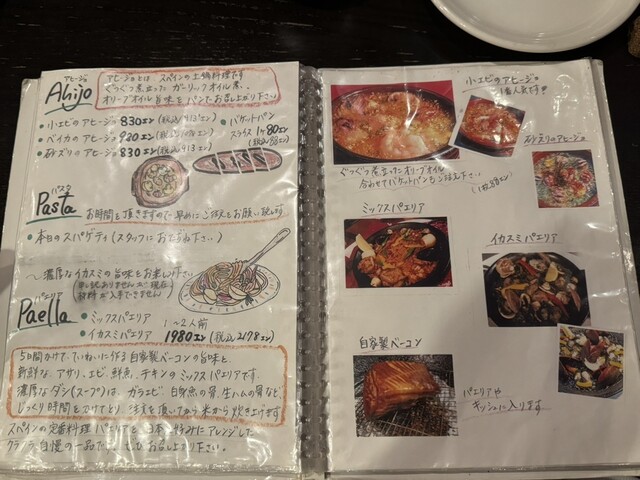 アヒージョ
Ahijo
アヒージョとは スペインの土鍋料理です
ぐつぐつ煮立った ガーリックオイル煮、
オリーブオイル旨味をパンでお召し上がり下さい
・小エビのアヒージョ 830エン(税込913エン)
・ベイカのアヒージョ 920エン
・砂ズリのアヒージョ 830エン(税込913エン)
・バゲットパン
スライス1ケ80エン
(税込88エン)
パスタ
Pasta
お時間を頂きますので早めにご注文をお願い致します
・本日のスパゲティ(スタッフにおたずね下さい)
〜濃厚なイカスミの旨味をお楽しみ下さい
申し訳ありませんが現在
材料が入手できません
パエリア
Paella
・ミックスパエリア
1〜2人前
・イカスミパエリア 1980エン(税込2178エン)
5日間かけて、ていねいに作る自家製ベーコンの旨味と
新鮮な、アサリ、エビ、鮮魚、チキンのミックスパエリアです。
濃厚なダシ(スープ)は、ガラエビ、白身魚の骨、生ハムの骨など
じっくり時間をかけてとり、注文を頂いてから米から炊き上げます
スペインの定番料理パエリアを日本人好みにアレンジした
クラクラ自慢の一品です
お召し上がり下さい。
小エビのアヒージョ
1番人気です
砂ズリのアヒージョ
ぐつぐつ煮立ったオリーブオイル
合わせてバゲットパンもご注文下さい
(1枚88エン)
ミックスパエリア
イカスミパエリア
自家製ベーコン
パエリアや
キッシュに入ります